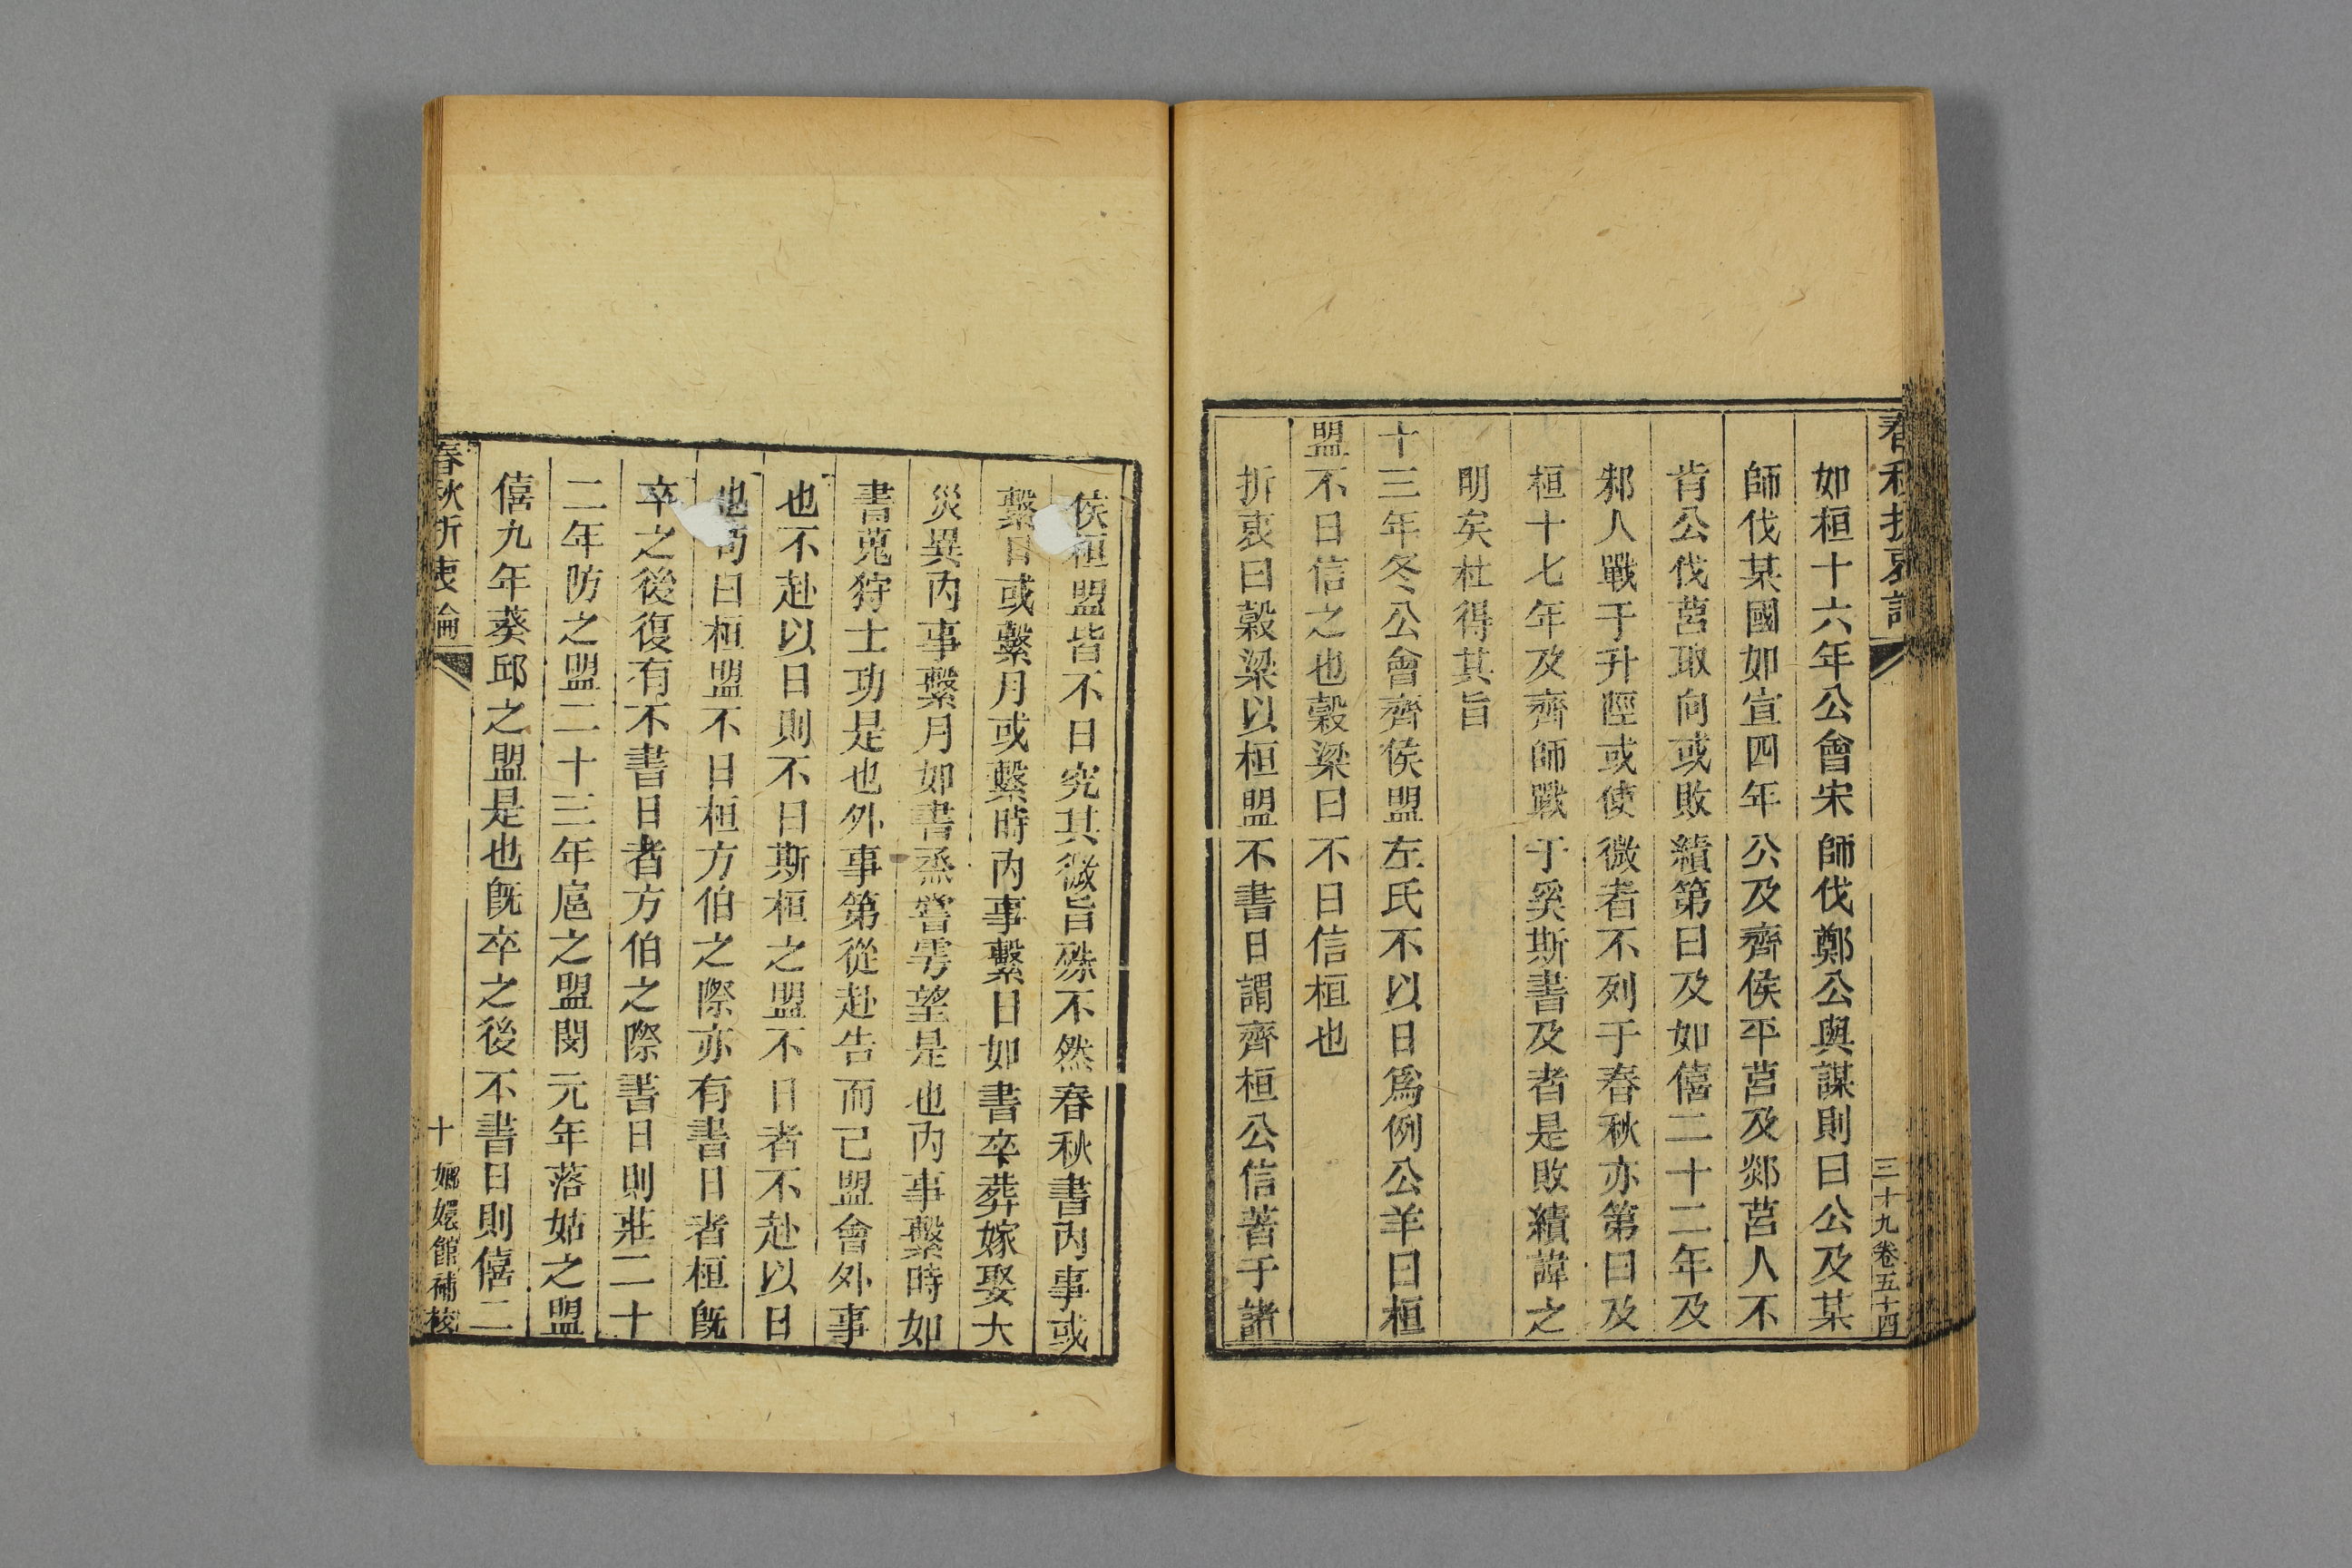 春秋折衷論
三十九卷五十四
如桓十六年公會宋師伐鄭公與謀則曰公及某
師伐某國如宣四年公及齊侯平莒及郯莒人不
肯公伐莒取向或敗績第曰及如僖二十二年及
邾人戰于升陘或使微者不列于春秋亦第曰及
桓十七年及齊師戰于奚斯書及者是敗績諱之
明矣杜得其旨
十三年冬公會齊侯盟左氏不以日爲例公羊曰桓
盟不日信之也穀梁曰不日信桓也
折衷曰穀梁以桓盟不書日謂齊桓公信著于諸
侯桓盟皆不日究其微旨殊不然春秋書內事或
繫日或繫月或繫時內事繫日如書卒葬嫁娶大
災異內事繫月如書烝嘗雩望是也內事繫時如
書蒐狩土功是也外事第從赴告而已盟會外事
也不赴以日則不日斯桓之盟不日者不赴以日
也 曰桓盟不日桓方伯之際亦有書日者桓旣
卒之後復有不書日者方伯之際書日則莊二十
二年防之盟二十三年扈之盟閔元年落姑之盟
僖九年葵邱之盟是也旣卒之後不書日則僖二
春秋折衷論
十 嫏嬛館補校